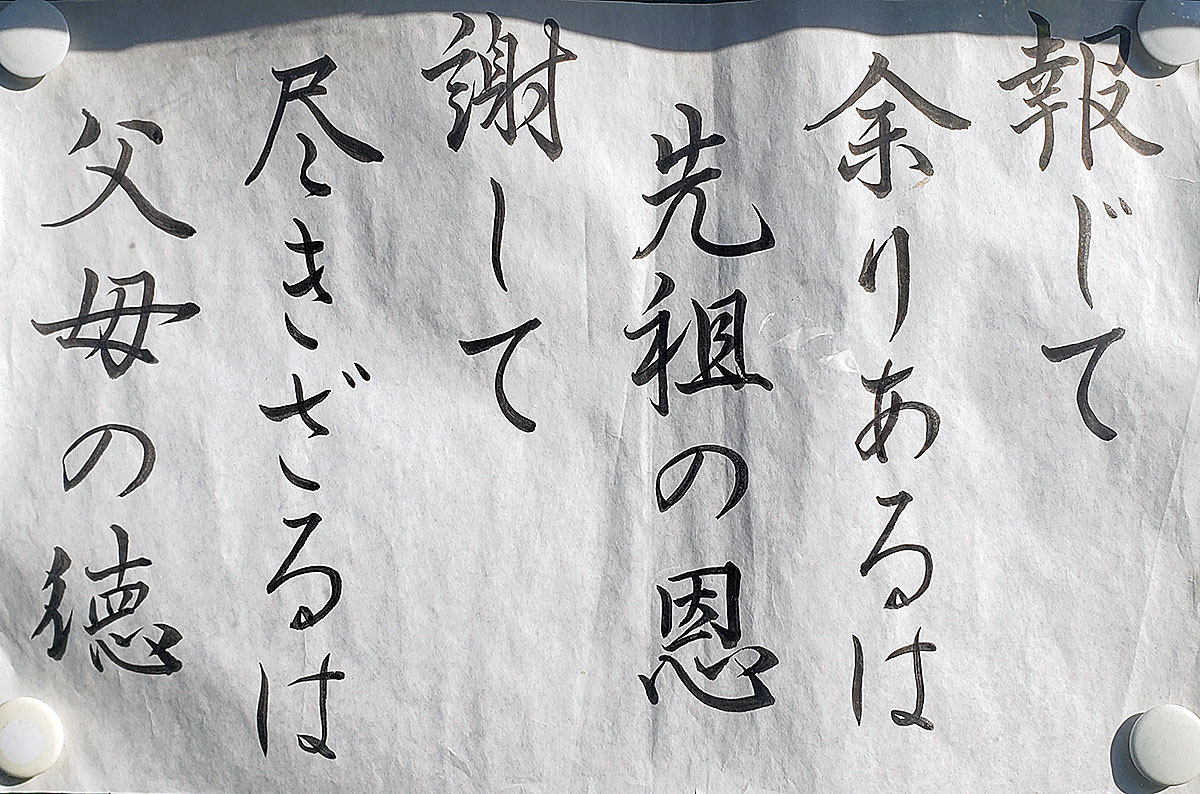 報じて
余りあるは
先祖の恩
謝して
尽きざるは
父母の徳